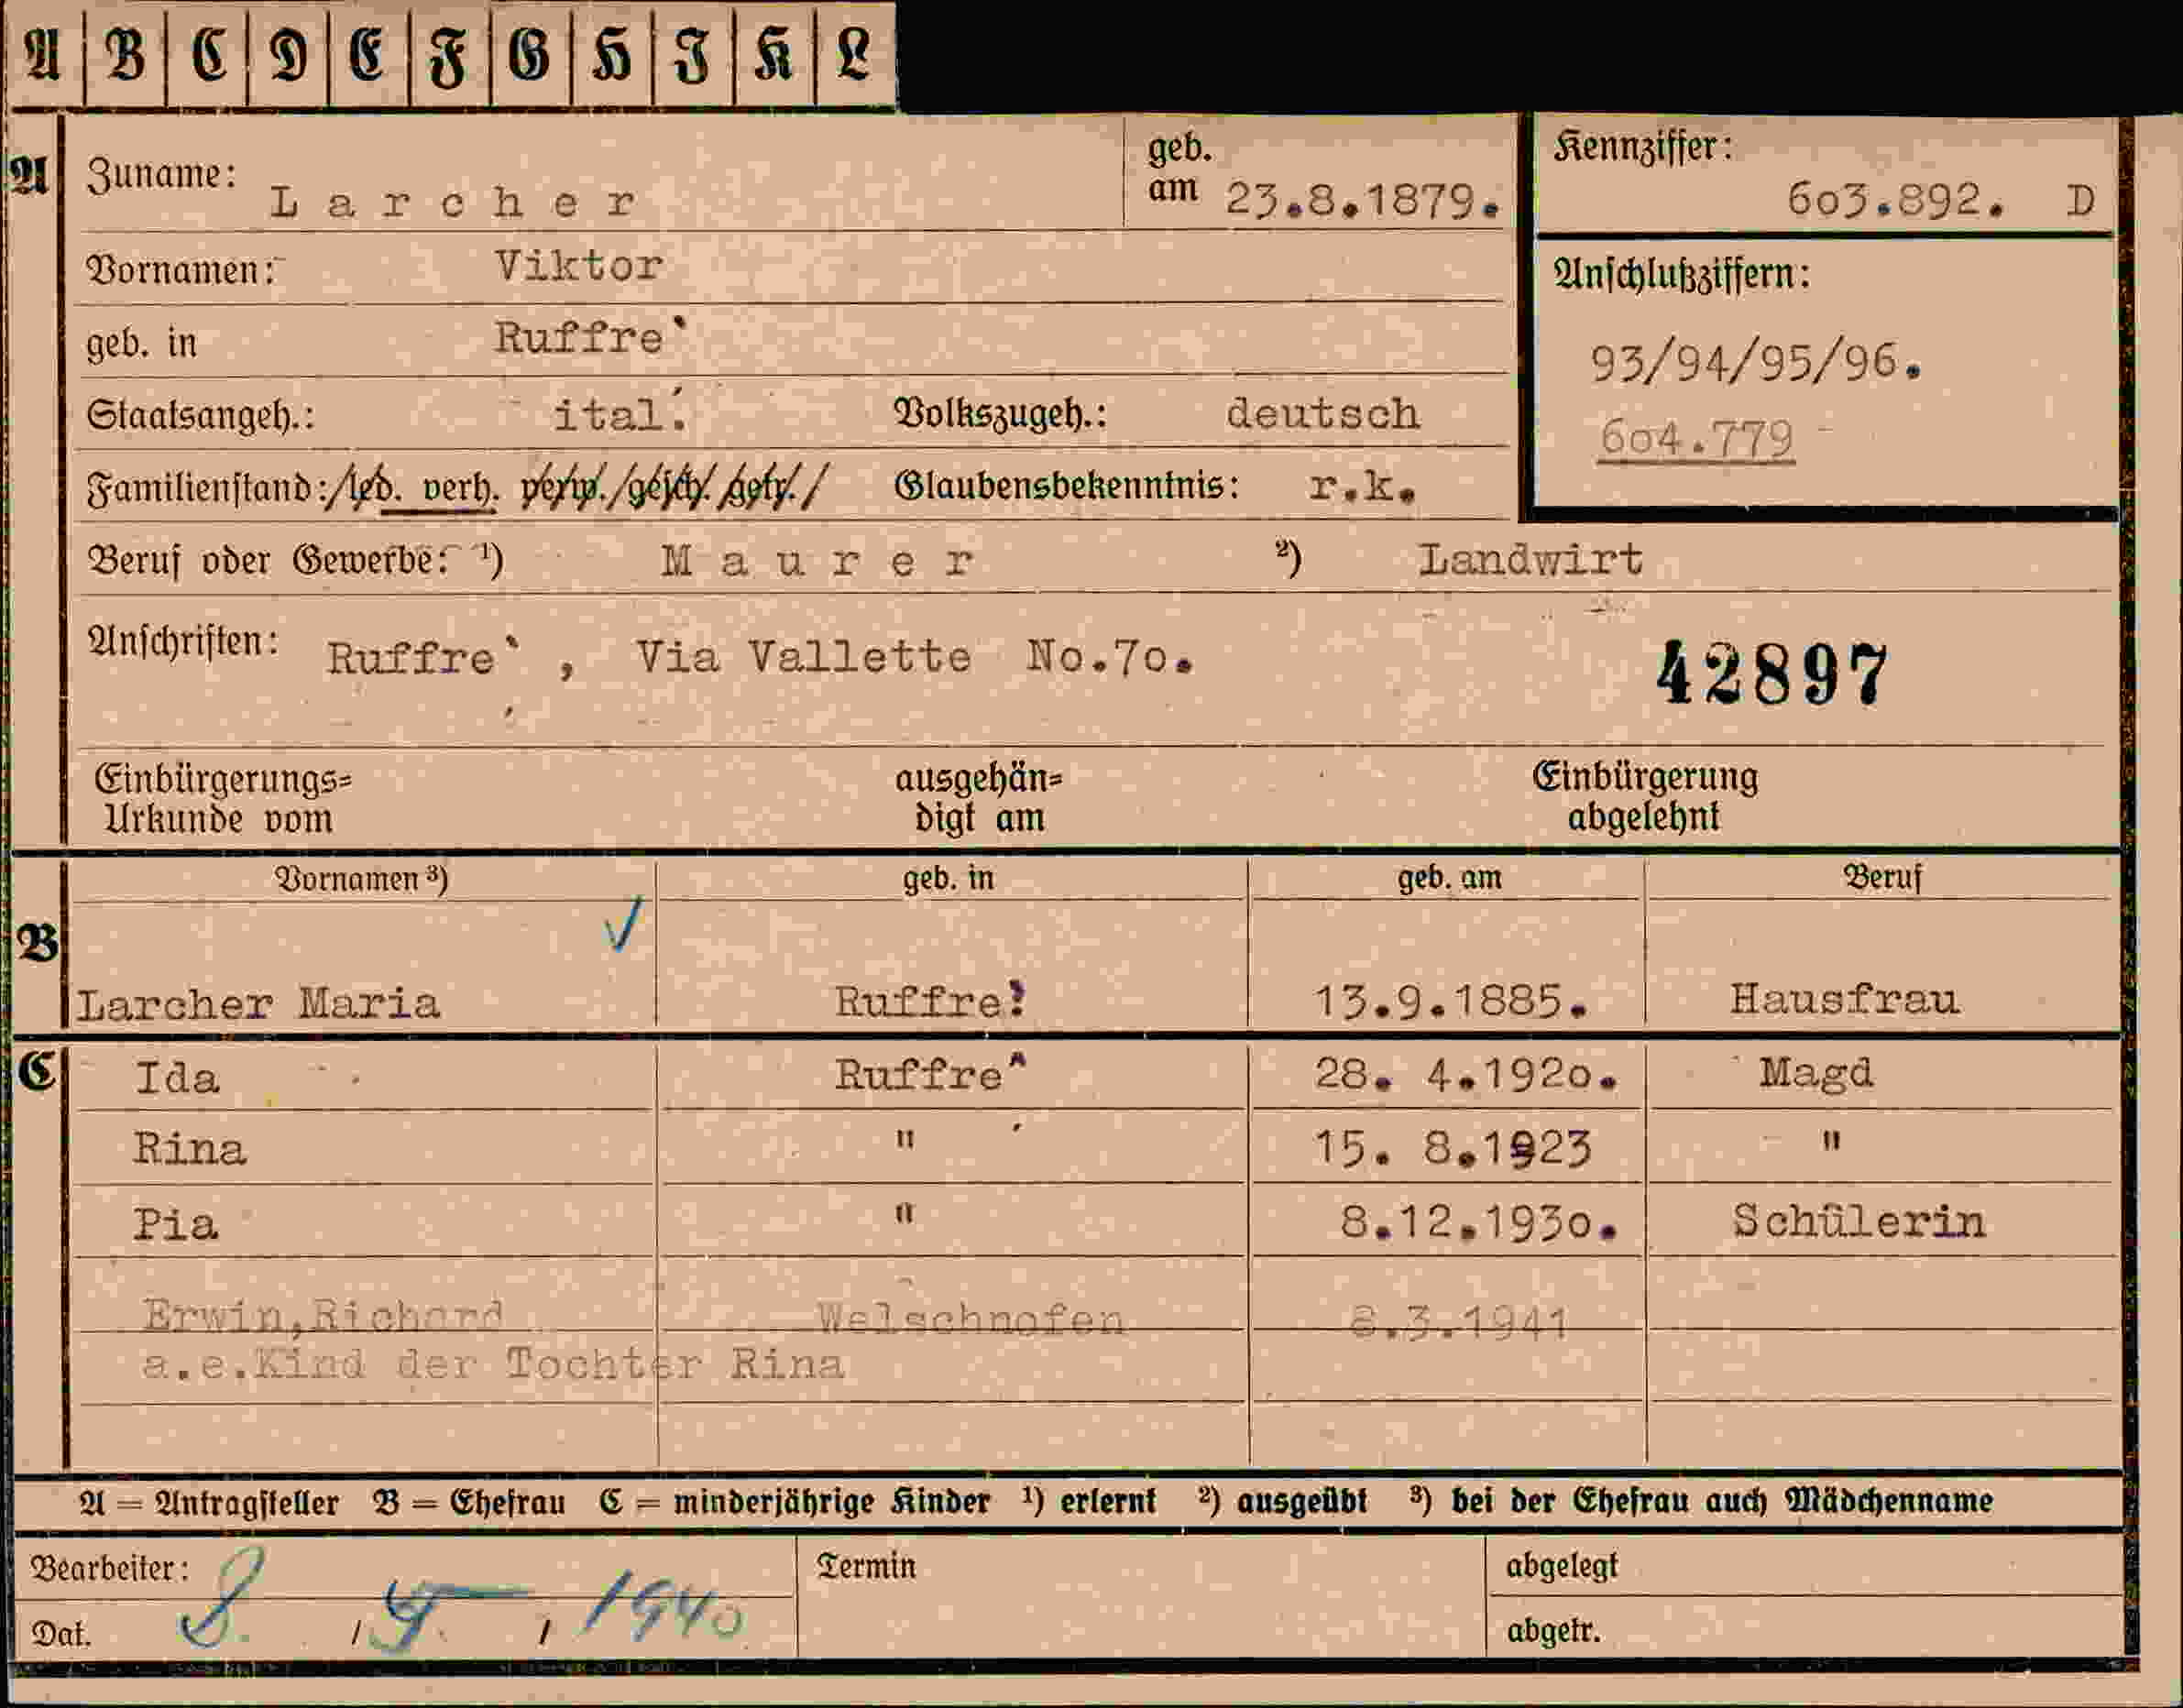 A B C D E F G H I K L
A Zuname: Larcher geb. am 23.8.1879. Kennziffer: 603.892. D
Vornamen: Viktor
geb. in Ruffre` Anschlußziffern:
93/94/95/96.
604.779
Staatsangeh.: ital. Volkszugeh.: deutsch
Familienstand: led. verh. verw. gesch. getr. Glaubensbekenntnis: r.k.
Beruf oder Gewerbe: ¹) Maurer ²) Landwirt
Anschriften: Ruffre` , Via Vallette No.70. 42897
Einbürgerungs= ausgehän= Einbürgerung
Urkunde vom digt am abgelehnt
Vornamen ³) geb. in geb. am Beruf
B
Larcher Maria Ruffre` 13.9.1885. Hausfrau
C Ida Ruffre^ 28. 4.1920. Magd
Rina " 15. 8.1923 "
Pia " 8.12.1930. Schülerin
Erwin,Richard Welschnofen 8.3.1941
a.e.Kind der Tochter Rina
A = Antragsteller B = Ehefrau C = minderjährige Kinder ¹) erlernt ²) ausgeübt ³) bei der Ehefrau auch Mädchenname
Bearbeiter: Termin abgelegt
Dat. 8. / / 1940 abgetr.